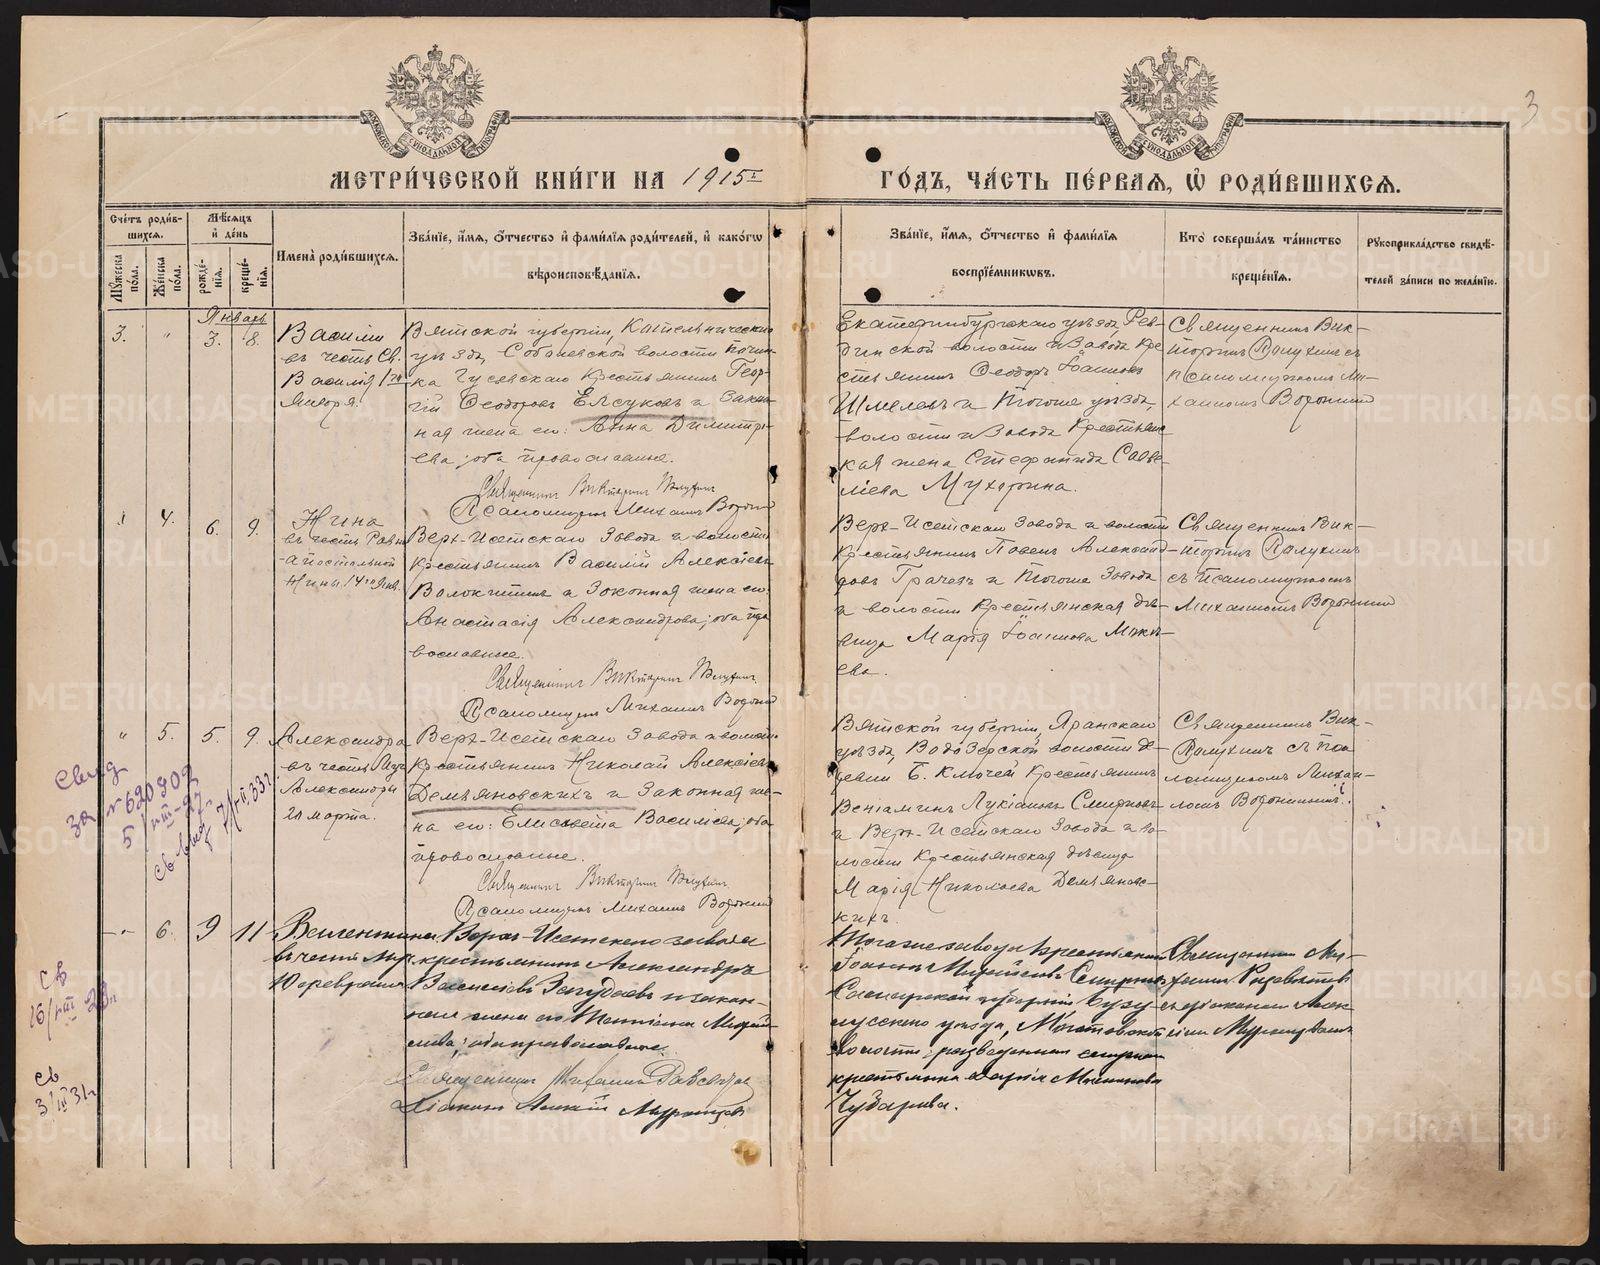 3
МОСКОВСКОЙ СѴНОДАЛЬНОЙ ТИПОГРАФІИ
МОСКОВСКОЙ СѴНОДАЛЬНОЙ ТИПОГРАФІИ
МЕТРИ́ЧЕСКОЙ КНИ́ГИ НА 1915й ГО́ДЪ, ЧА́СТЬ ПЕ́РВАѦ, Ѡ҆ РОДИ́ВШИХСѦ.
Сче́тъ роди́в-
шихсѧ.
Мꙋ́жеска по́ла.
Же́нска по́ла.
Мѣ́сѧцъ и҆ де́нь
рожде́-
нїѧ.
креще́-
нїѧ.
Имена̀ роди́вшихсѧ.
Зва́нїе, и҆́мѧ, ѻ҆́тчество и҆ фами́лїѧ роди́телей, и҆ како́гѡ
вѣроисповѣ́данїѧ.
Зва́нїе, и҆́мѧ, ѻ҆́тчество и҆ фами́лїѧ
воспрїе́мникѡвъ.
Кто̀ соверша́лъ та́инство
креще́нїѧ.
Рꙋкоприкла́дство свидѣ́-
телей за́писи по жела́нїю.
Январь
3. " 3. 8.
Василiй
въ честь Св.
Василiя 1го
Января.
Вятской губернiи, Котельническаго
уѣзда, Собаневской волости почин-
ка Гусевскаго Крестьянинъ Геор-
гiй Ѳеодоровъ Елсуковъ и Закон-
ная жена его: Анна Димитрi-
ева; оба православные.
Священникъ Викторинъ
Псаломщикъ Михаилъ Воронин
Екатеринбургскаго уѣзда Рев-
динской волости и Завода Кре
стьянинъ Ѳеодоръ Iоанновъ
Шмелевъ и Тогоже уѣзда,
волости и Завода Крестьянс
кая жена Стефанида Савве-
лiева Мухорина.
Священникъ Вик-
торинъ съ
псаломщикомъ Ми-
хаиломъ Воронин
" 4. 6. 9.
Нина
въ честь Равно
-апостольной
Нины. 14го Янв.
Верх-Исетскаго Завода и волости
Крестьянинъ Василiй Алексѣевъ
Волокитинъ и Законная жена его
Анастасiя Александрова; оба пра
вославные.
Священникъ Викторинъ
Псаломщикъ Михаилъ Воронин
Верх-Исетскаго Завода и волости
Крестьянинъ Павелъ Александ-
ровъ Грачевъ и Тогоже Завода
и волости Крестьянская дѣ-
вица Марiя Iоаннова
ева.
Священникъ Вик-
торинъ
съ Псаломщикомъ
Михаиломъ Воронин
" 5. 5. 9.
Александра
въ честь Муч
Александры
20 марта.
Верх-Исетскаго Завода и волости
Крестьянинъ Николай Алексѣевъ
Демьяновскихъ и Законная же-
на его: Елисавета Васильева; оба
православные.
Священникъ Викторинъ
Псаломщикъ Михаилъ Воронин
Вятской губернiи, Яранскаго
уѣзда, Водозерской волости де-
ревни Б. Ключей Крестьянинъ
Венiаминъ Лукiановъ Смирновъ
и Верх-Исетскаго Завода и во-
лости Крестьянская дѣвица
Марiя Николаева Демьяновс-
кихъ.
Священникъ Вик-
съ пса
ломщикомъ Михаи-
ломъ Ворониным
Свид
за № 620902
5/VIII-27
7/III 33г.
-"- 6. 9 11
Валентина
въ честь Муч.
10 февраля
Верхъ-Исетскаго завода
крестьянинъ Александръ
Васильевъ и закон-
ная жена его Татiана
оба православные.
Священникъ Михаилъ
Дiаконъ Алексiй
Тогоже завода крестьянинъ
Iоаннъ Смирновъ
Самарской губернiи Бузу-
лукскаго уѣзда,
волости, разведенная
крестьянка Марiя
Чубарева.
Священникъ Ми-
хаилъ
съ дiакономъ Алек
сiемъ
св
16/VIII 28г
св
3/III 31г
METRIKI.GASO-URAL.RU